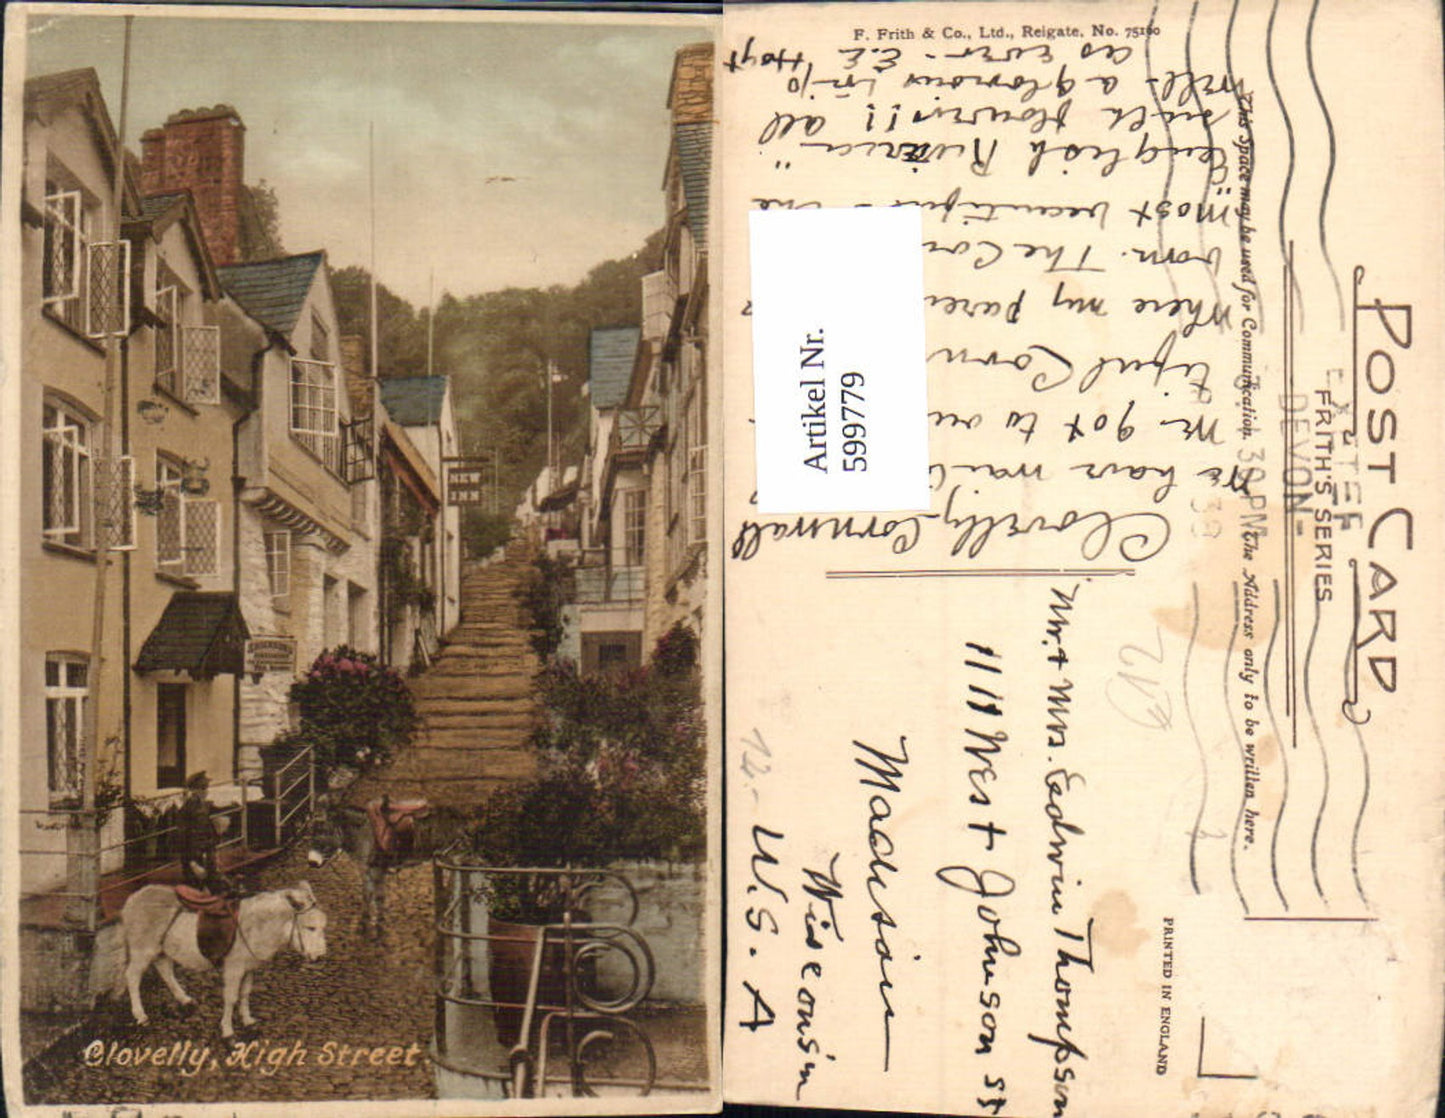 NEW
INN
Clovelly, High Street.
F. Frith & Co., Ltd., Reigate. No. 75160
POST CARD
FRITH'S SERIES
This Space may be used for Communication.
The Address only to be written here.
PRINTED IN ENGLAND
EXETER
DEVON-
30 PM
Artikel Nr.
599779
Clovelly-Cornwall
We have
We got to
tiful Corn
where my
born. The
"most beautiful - the
English Riviera"
with flowers!! all
well - a glorious trip
as ever - E.E. Hoyt
Mr. + Mrs. Edwin Thompson
1111 West Johnson St
Madison
Wisconsin
12.- U.S.A